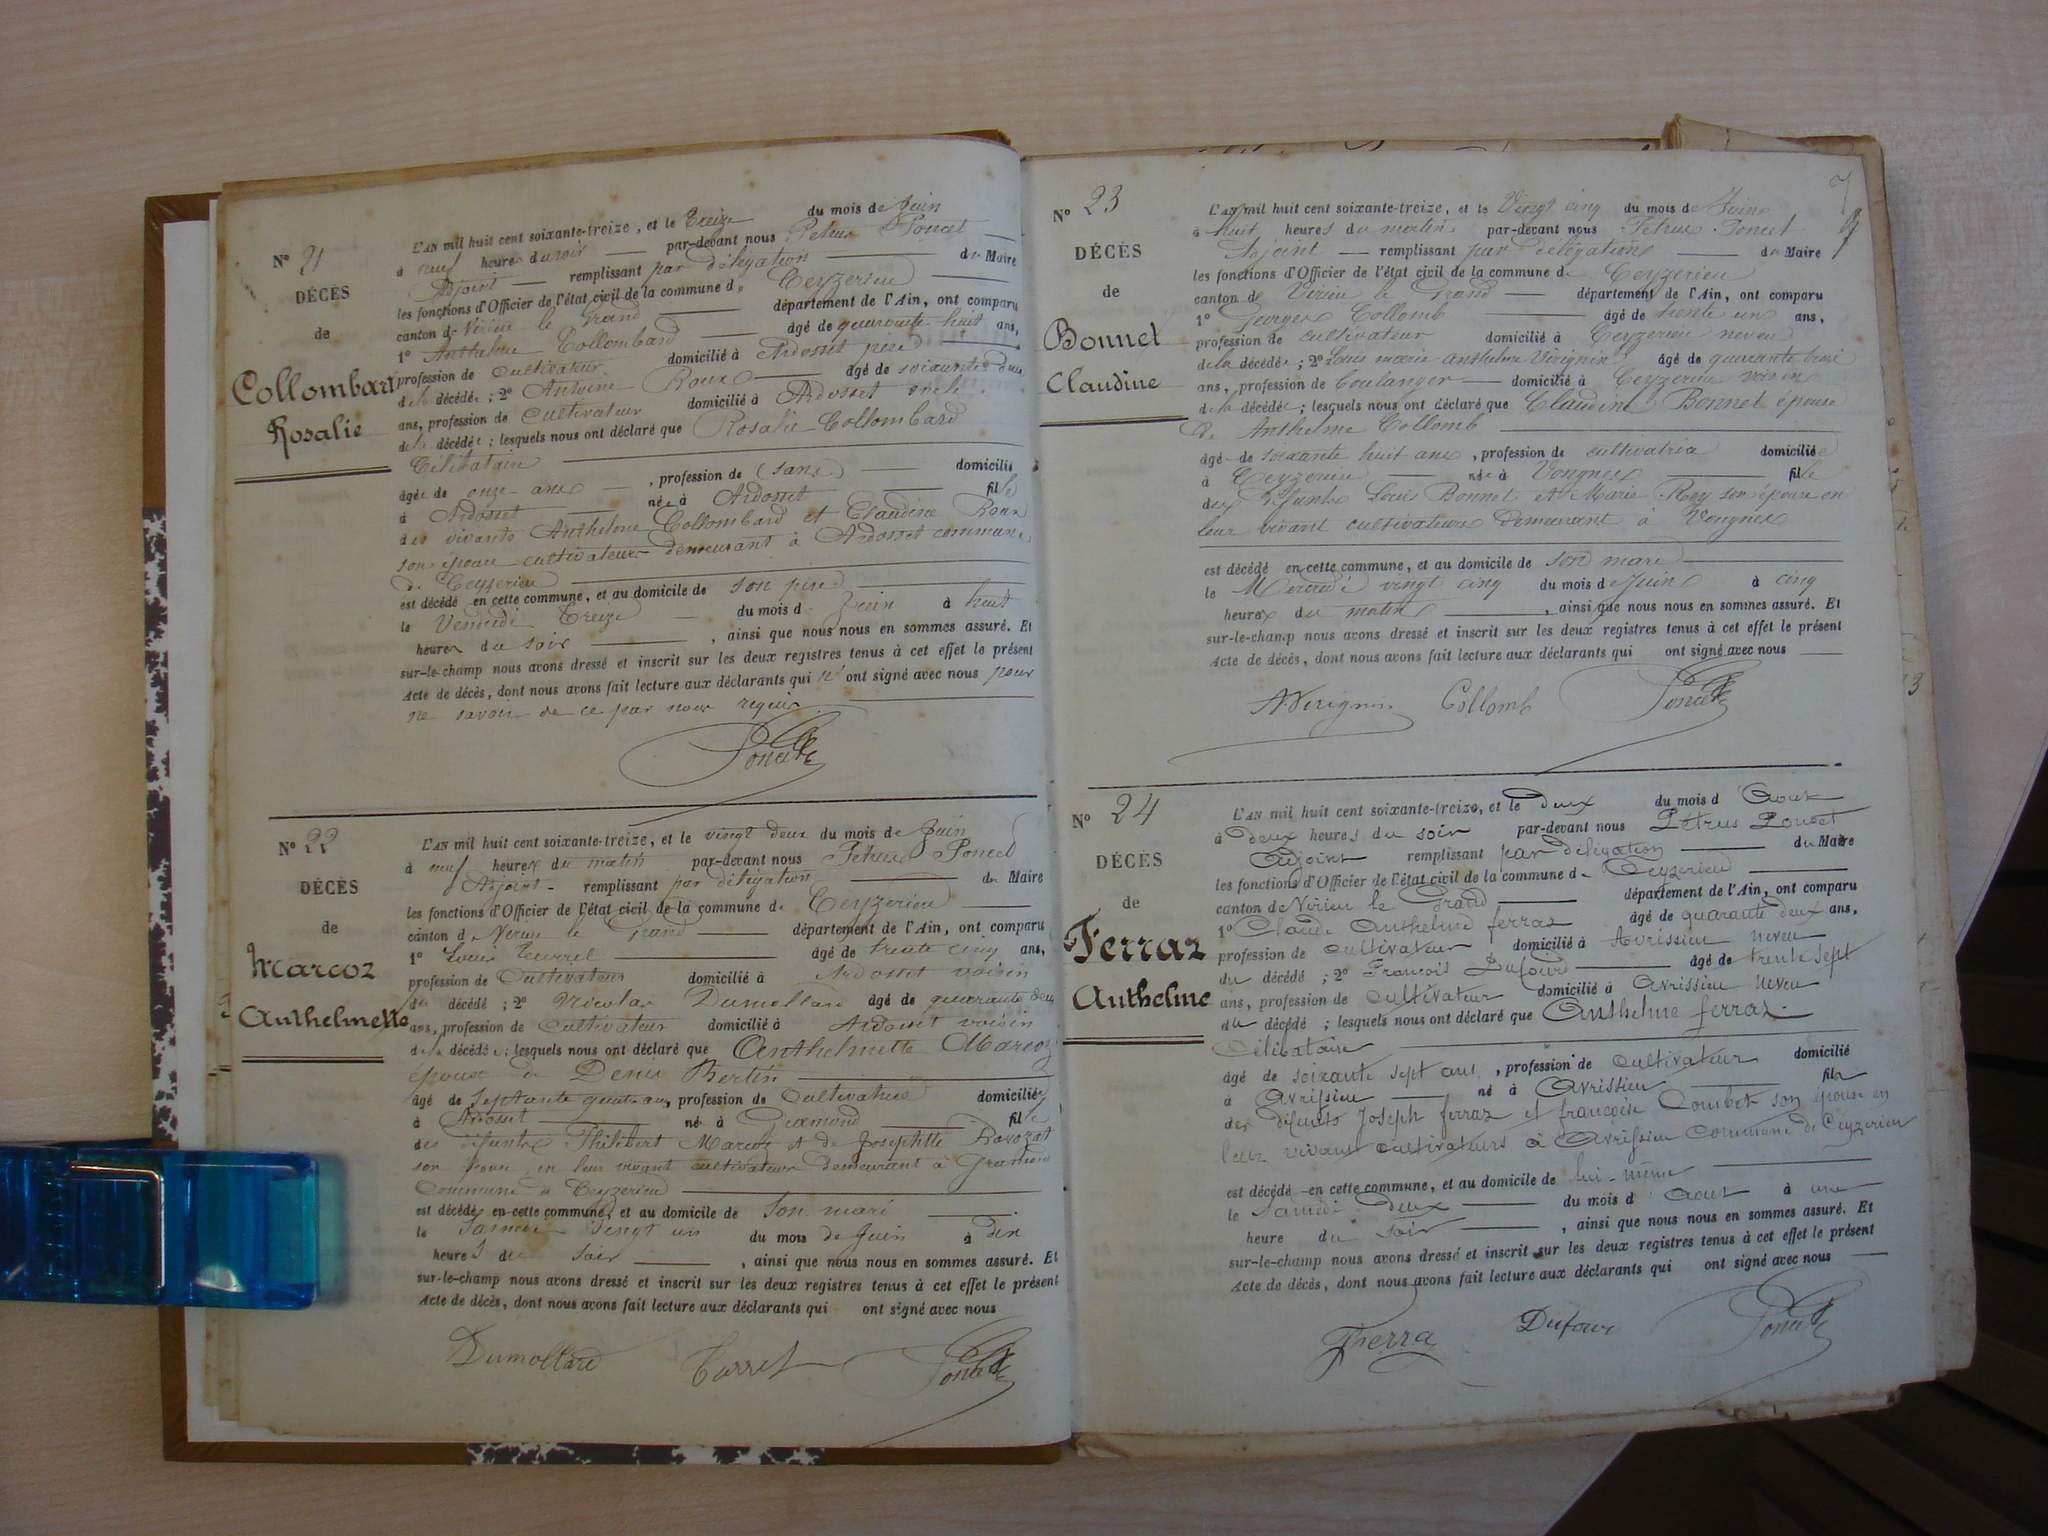 N° 21
DÉCÈS
de
Collombard
Rosalie
L'AN mil huit cent soixante-treize, et le Treize du mois de Juin
à neuf heures du soir par-devant nous Petrus Poncet
Adjoint remplissant par délégation du Maire
les fonctions d'Officier de l'état civil de la commune de Ceyzerieu
canton de Virieu le Grand département de l'Ain, ont comparu
1° Anthelme Collombard âgé de quarante huit ans,
profession de Cultivateur domicilié à Ardosset père
de la décédée ; 2° Antoine Roux âgé de soixante deux
ans, profession de Cultivateur domicilié à Ardosset oncle
de la décédée ; lesquels nous ont déclaré que Rosalie Collombard
Célibataire
âgée de onze ans, profession de (sans) domicilié
à Ardosset née à Ardosset fille
des vivants Anthelme Collombard et Claudine Roux
son épouse cultivateurs demeurant à Ardosset commune
de Ceyzerieu
est décédé en cette commune, et au domicile de son père
le Vendredi Treize du mois de Juin à huit
heures du soir, ainsi que nous nous en sommes assuré. Et
sur-le-champ nous avons dressé et inscrit sur les deux registres tenus à cet effet le présent
Acte de décès, dont nous avons fait lecture aux déclarants qui n'ont signé avec nous pour
ne savoir de ce par nous requis
Poncet
N° 22
DÉCÈS
de
Marcoz
Anthelmette
L'AN mil huit cent soixante-treize, et le vingt deux du mois de Juin
à neuf heures du matin par-devant nous Petrus Poncet
Adjoint - remplissant par délégation du Maire
les fonctions d'Officier de l'état civil de la commune de Ceyzerieu
canton de Virieu le Grand département de l'Ain, ont comparu
1° Louis âgé de trente cinq ans,
profession de Cultivateur domicilié à Ardosset voisin
du décédé ; 2° Nicolas Dumollard âgé de quarante deux
ans, profession de Cultivateur domicilié à Ardosset voisin
de la décédée ; lesquels nous ont déclaré que Anthelmette Marcoz
épouse de Denis Bertin
âgé de Septante quatre ans, profession de Cultivatrice domiciliée
à Ardosset né à fille
des défunts Philibert Marcoz et de Josephtte
son épouse en leur vivant cultivateurs demeurant à
Commune de Ceyzerieu
est décédé en cette commune, et au domicile de Son mari
le Samedi Vingt un du mois de Juin à dix
heures du Soir, ainsi que nous nous en sommes assuré. Et
sur-le-champ nous avons dressé et inscrit sur les deux registres tenus à cet effet le présent
Acte de décès, dont nous avons fait lecture aux déclarants qui ont signé avec nous
Dumollard Poncet
7
N° 23
DÉCÈS
de
Bonnet
Claudine
L'AN mil huit cent soixante-treize, et le Vingt cinq du mois de Juin
à huit heures du matin par-devant nous Petrus Poncet
Adjoint remplissant par délégation du Maire
les fonctions d'Officier de l'état civil de la commune de Ceyzerieu
canton de Virieu le Grand département de l'Ain, ont comparu
1° Georges Collomb âgé de trente un ans,
profession de cultivateur domicilié à Ceyzerieu neveu
de la décédée ; 2° Louis marie anthelme Virignin âgé de quarante trois
ans, profession de boulanger domicilié à Ceyzerieu voisin
de la décédée ; lesquels nous ont déclaré que Claudine Bonnet épouse
de Anthelme Collomb
âgé de soixante huit ans, profession de cultivatrice domiciliée
à Ceyzerieu née à Vongnes fille
des défunts Louis Bonnet et Marie Rey son épouse en
leur vivant cultivateurs demeurant à Vongnes
est décédé en cette commune, et au domicile de son mari
le Mercredi vingt cinq du mois de Juin à cinq
heures du matin, ainsi que nous nous en sommes assuré. Et
sur-le-champ nous avons dressé et inscrit sur les deux registres tenus à cet effet le présent
Acte de décès, dont nous avons fait lecture aux déclarants qui ont signé avec nous
A. Virignin Collomb Poncet
N° 24
DÉCÈS
de
Ferraz
Anthelme
L'AN mil huit cent soixante-treize, et le deux du mois d'Août
à deux heures du soir par-devant nous Pétrus Poncet
Adjoint remplissant par délégation du Maire
les fonctions d'Officier de l'état civil de la commune de Ceyzerieu
canton de Virieu le Grand département de l'Ain, ont comparu
1° Claude Anthelme ferraz âgé de quarante deux ans,
profession de cultivateur domicilié à Avrissieu neveu
du décédé ; 2° François Dufour âgé de trente sept
ans, profession de cultivateur domicilié à Avrissieu neveu
du décédé ; lesquels nous ont déclaré que Anthelme ferraz
Célibataire
âgé de soixante sept ans, profession de cultivateur domicilié
à Avrissieu né à Avrissieu fils
des défunts Joseph ferraz et françoise Combet son épouse en
leur vivant cultivateurs à Avrissieu Commune de Ceyzerieu
est décédé en cette commune, et au domicile de lui-même
le Samedi deux du mois d'Août à une
heure du soir, ainsi que nous nous en sommes assuré. Et
sur-le-champ nous avons dressé et inscrit sur les deux registres tenus à cet effet le présent
Acte de décès, dont nous avons fait lecture aux déclarants qui ont signé avec nous
Dufour Poncet